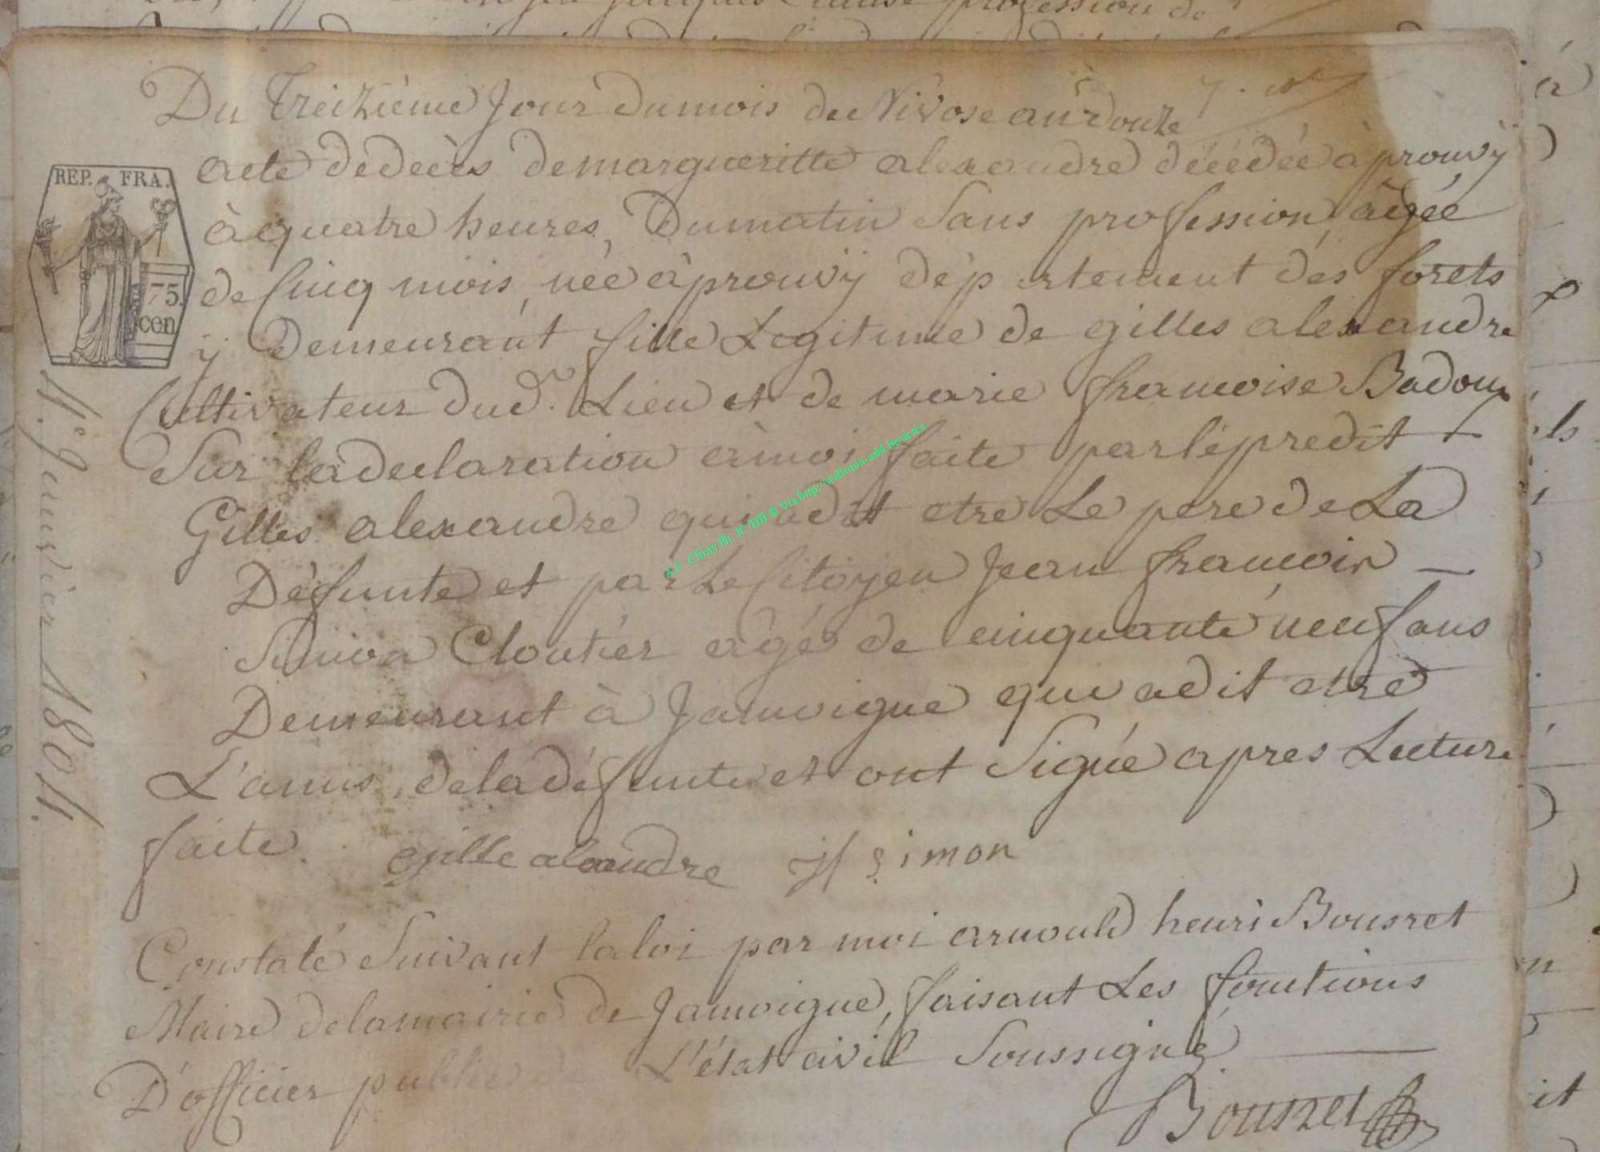 Du Treizième Jour du mois de Nivose an douze
acte de decès de margueritte alexandre décédée à prouvÿ
à quatre heures, Du matin Sans profession, âgée
de Cinq mois, née à prouvÿ dép rtement des forets
ÿ Demeurant fille Legitime de gilles alexandre
Cultivateur dud. Lieu et de marie francoise Badoux
Sur la declaration à moi faite par le predit
Gilles alexandre qui a dit etre Le pere de La
Défunte et par Le Citoÿen Jean francois —
Simon Cloutier agé de cinquante neuf ans
Demeurant à Jamoigne qui a dit etre
L'amis, de la défunte et ont Signé apres Lecture
faite. gille alexandre jf simon
Constaté Suivant la loi par moi arnould henri Bousret
Maire de la mairie de Jamoigne, faisant Les fonctions
D'officier public de L'état civil Soussigné
Bousret
REP. FRA.
75.
cen
Janvier 1804.